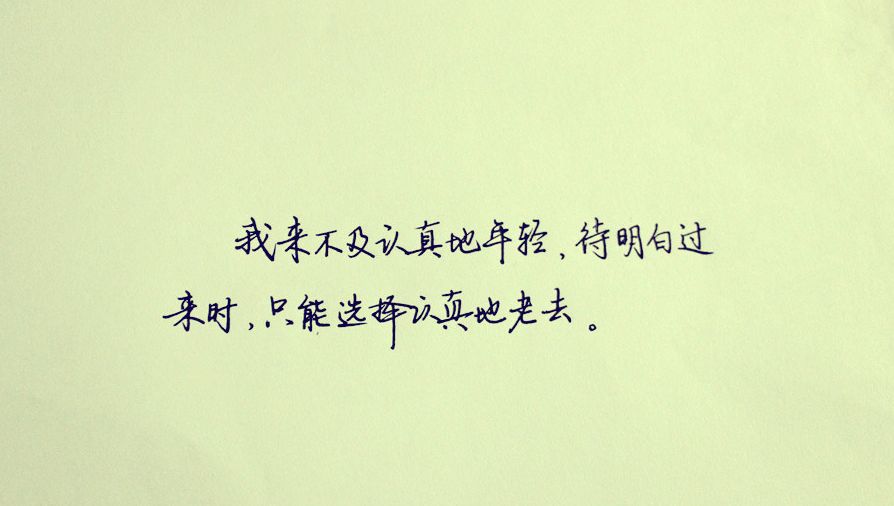 我来不及认真地年轻,待明白过
来时,只能选择认真地老去。